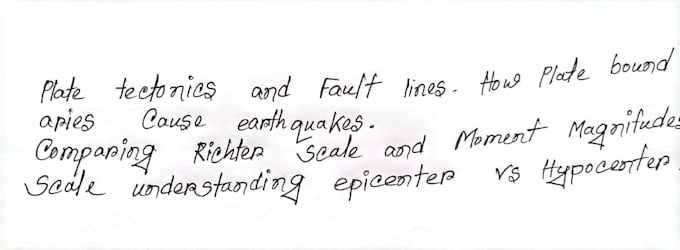 Plate tectonics and Fault lines. How Plate bound
aries Cause earthquakes.
Comparing Richter Scale and Moment Magnitudes
Scale understanding epicenter vs Hypocenter.